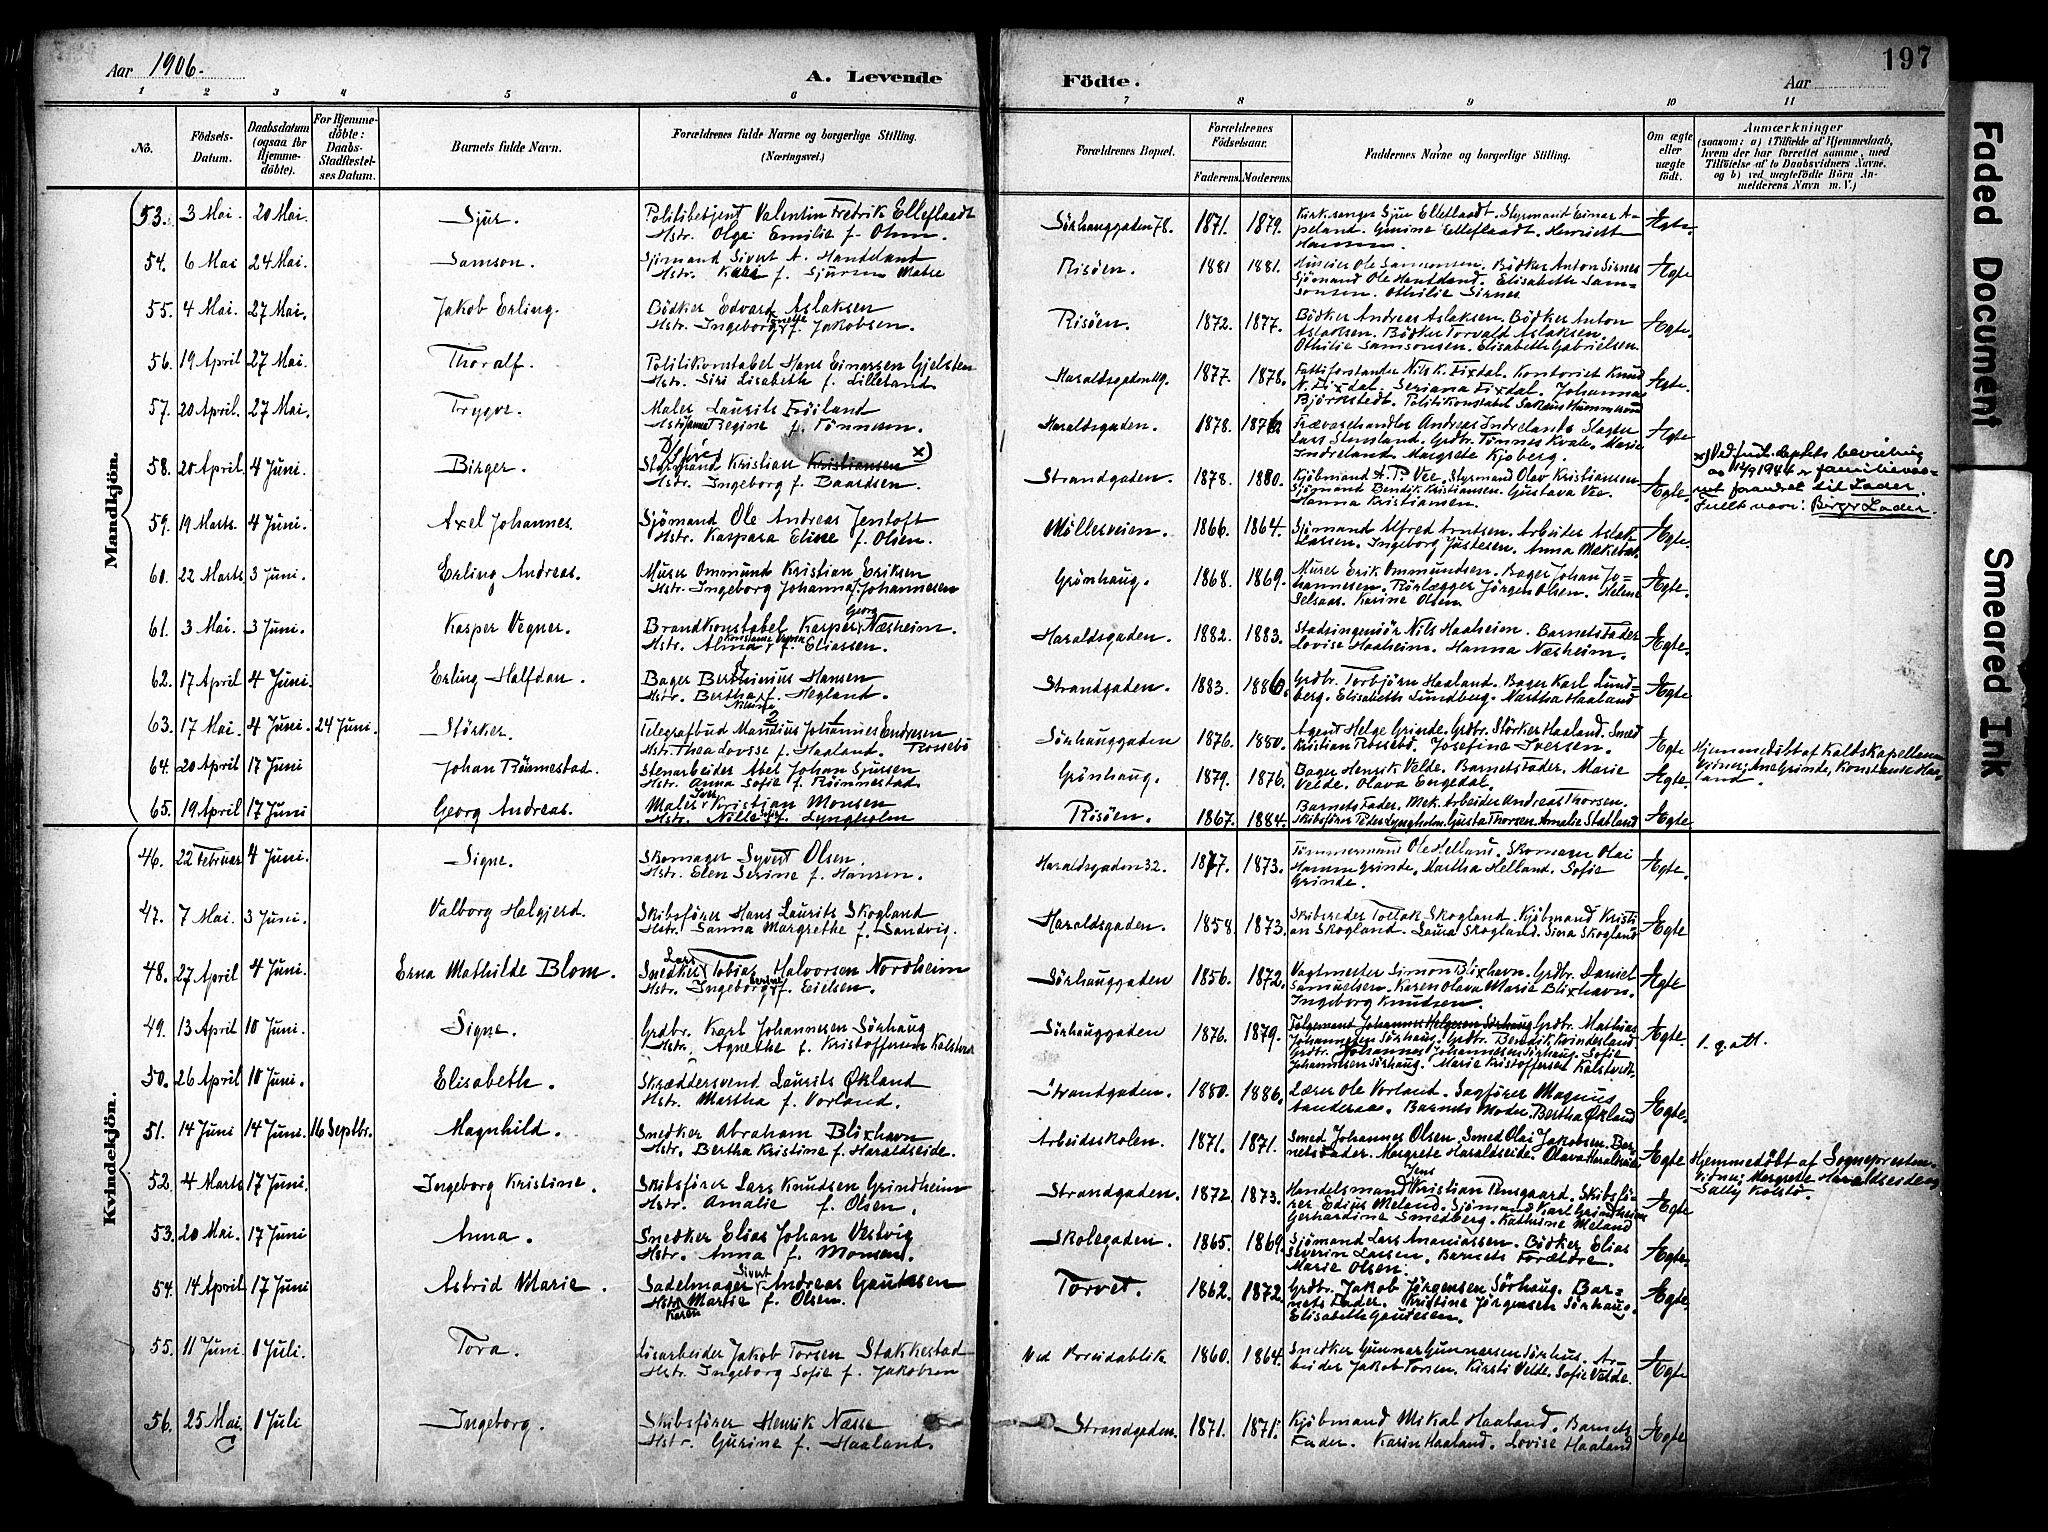 Aar 1906.
A. Levende
Födte.
Aar
197
1 2 3 4 5 6 7 8 9 10 11
No.
Födsels-Datum.
Daabsdatum (ogsaa for Hjemmedöbte).
For Hjemmedöbte: Daabs-Stadfæstelses Datum.
Barnets fulde Navn.
Forældrenes fulde Navne og borgerlige Stilling. (Næringsvei.)
Forældrenes Bopæl.
Forældrenes Födselsaar.
Faderens. Moderens.
Faddernes Navne og borgerlige Stilling.
Om ægte eller uægte födt.
Anmærkninger
(saasom: a) i Tilfælde af Hjemmedaab, hvem der har forrettet samme, med Tilföielse af to Daabsvidners Navne, og b) ved uægtefödte Börn Anmelderens Navn m. V.)
Mandkjön.
53. 3 Mai. 20 Mai. Sjur. Politibetjent Valentin Fredrik Elleflaadt
Hstr. Olga Emilie f. Olsen. Sörhauggaden 78. 1871. 1879. Kirkesanger Sjur Elleflaadt. Styrmand Einar Apeland. Gurine Elleflaadt. Henriette Hansen. Ægte.
54. 6 Mai 24 Mai. Samson. Sjömand Sivert A. Handeland
Hstr. Kari f. Sjursen Matre Risöen. 1881 1881. Ole Samsonsen. Bödker Anton Sirnes
Sjömand Ole Handeland. Elisabeth Samsonsen. Othilie Sirnes. Ægte
55. 4 Mai. 27 Mai. Jakob Erling. Bödker Edvard Aslaksen
Hstr. Ingeborg Tonette f. Jakobsen. Risöen. 1872. 1877. Bödker Andreas Aslaksen. Bödker Anton
Aslaksen. Bödker Torvald Aslaksen.
Othilie Samsonsen. Elisabeth Gabrielsen. Ægte.
56. 19 April 27 Mai. Thoralf. Politikonstabel Hans Einarsen Gjelsten
Hstr. Siri Lisabeth f. Lilleland Haraldsgaden 1877. 1878. Fattiforstander Nils K. Fixdal. Kontorist Knud
N. Fixdal. Seriana Fixdal. Johannes
Björnstedt. Politikonstabel Ægte.
57. 20 April. 27 Mai. Trygve. Maler Laurits Fröiland
Hstr. Regine f. Tönnesen. Haraldsgaden. 1878. Trævarehandler Andreas Indreland. Slagter
Lars Stensland. Grdbr. Tönnes Kvale. Marie
Indreland. Margrete Kjoberg. Ægte
58. 20 April. 4 Juni. Birger. Styrmand Kristian Kristiansen x)
Hstr. Ingeborg f. Baardsen. Strandgaden. 1878. 1880. Kjöbmand A. P. Vee. Styrmand Olav Kristiansen.
Sjömand Bendik Kristiansen. Gustava Vee.
Hanna Kristiansen. Ægte.
x) Ved just.deptets bevilling
av 12/9 1946 er familienavnet
forandret til Lader.
Fullt navn: Birger Lader.
59. 19 Marts. 4 Juni. Axel Johannes. Sjömand Ole Andreas Jentoft
Hstr. Kaspara Elise f. Olsen. Möllerveien. 1866. 1864. Sjömand Alfred Arntsen. Arbeider Aslak
Larsen. Ingeborg Justesen. Anna Ægte.
60. 22 Marts 3 Juni. Erling Andreas. Murer Ommund Kristian Eriksen
Hstr. Ingeborg Johanna f. Johannesen Grönhaug. 1868. 1869. Murer Erik Ommundsen. Bager Johan Johannesen.
Rörlægger Jörgen Olsen. Helene
Selsaas. Karine Olsen. Ægte.
61. 3 Mai. 3 Juni. Kasper Vegner. Brandkonstabel Kasper Georg Næsheim.
Hstr. Alma f. Eliassen. Haraldsgaden. 1882. 1883. Stadsingeniör Nils Haaheim. Barnets Fader
Lovise Haaheim. Hanna Næsheim. Ægte.
62. 17 April 4 Juni. Erling Halfdan. Bager Berthinius Hansen
Hstr. Bertha f. Hegland. Strandgaden. 1883. 1886. Grdbr. Torbjörn Haaland. Bager Karl Lundberg.
Elisabeth Lundberg. Martha Haaland Ægte
63. 17 Mai. 4 Juni. 24 Juni. Störker. Telegrafbud Mandius Johannes Endresen Rossebö
Hstr. Theadovsse f. Haaland. Sörhauggaden 1876. 1880. Agent Helge Grinde. Grdbr. Störker Haaland. Smed
Kristian Rossebö. Josefine Iversen. Ægte
Hjemmedöbt af Kaldskapellanen
Vidner: Ane Grinde, Konstanse Haaland.
64. 20 April 17 Juni Johan Rönnestad. Stenarbeider Abel Johan Sjursen
Hstr. Anna Sofie f. Rönnestad Grönhaug. 1879. 1876. Bager Henrik Velde. Barnets Fader. Marie
Velde. Olava Engedal. Ægte.
65. 19 April 17 Juni Georg Andreas. Maler Kristian Monsen
Hstr. Nille f. Lyngholm Risöen. 1867. 1884. Barnets Fader. Mek. Arbeider Andreas Thorsen.
Skibsförer Peder Lyngholm. Gusta Thorsen. Amalie Stabland Ægte.
Kvindekjön.
46. 22 Februar 4 Juni. Signe. Skomager Syvert Olsen.
Hstr. Elen Serine f. Hansen. Haraldsgaden 32. 1877. 1873. Tömmermand Ole Helland. Skomager Olai
Grinde. Martha Helland. Sofie
Grinde. Ægte.
47. 7 Mai. 3 Juni. Valborg Halgjerd. Skibsförer Hans Laurits Skogland
Hstr. Sanna Margrethe f. Sandvig. Haraldsgaden. 1858. 1873. Skibsreder Tollak Skogland. Kjöbmand Kristian
Skogland. Laura Skogland. Sina Skogland Ægte
48. 27 April 4 Juni. Erna Mathilde Blom. Snedker Lars Tobias Halvorsen Nordheim
Hstr. Ingeborg f. Eielsen. Sörhauggaden 1856. 1872. Vagtmester Simon Blixhavn. Grdbr. Daniel
Samuelsen. Karen Olava Marie Blixhavn.
Ingeborg Knudsen. Ægte
49. 13 April 10 Juni. Signe. Grdbr. Karl Johannesen Sörhaug
Hstr. Agnethe f. Kristoffersen Kalstveit Sörhauggaden 1876. 1879. Johannes Helgesen Sörhaug. Grdbr. Mathias
Johannesen Sörhaug. Grdbr. Benedik Kvinnesland
Grdbr. Johannes Johannesen Sörhaug. Sofie
Johannesen Sörhaug. Marie Kristoffersen Kalstvedt. Ægte. 1. g. att.
50. 26 April 10 Juni. Elisabeth. Skræddersvend Laurits Økland
Hstr. Martha f. Vorland. Strandgaden. 1880. 1886. Lærer Ole Vorland. Sagförer Magnus
Aanderaa. Barnets Moder. Bertha Økland Ægte.
51. 14 Juni 14 Juni. 16 Septbr. Magnhild. Snedker Abraham Blixhavn
Hstr. Bertha Kristine f. Haraldseide. Arbeidsskolen. 1871. 1871. Smed Johannes Olsen. Smed Olai Jakobsen. Barnets
Fader. Margrete Haraldseide. Olava Haraldseide Ægte
Hjemmedöbt af Sognepresten.
Vidner: Margrete Haraldseide og
Sally Kolstö.
52. 4 Marts 17 Juni. Ingeborg Kristine. Skibsförer Lars Knudsen Grindheim
Hstr. Amalie f. Olsen. Strandgaden. 1872 1873. Handelsmand Jens Kristian Rensgaard. Skibsförer
Edius Meland. Sjömand Karl Grindheim
Gerhardine Smedberg. Kathrine Meland Ægte
53. 20 Mai. 17 Juni Anna. Snedker Elias Johan Vestvig
Hstr. Anna f. Monsen. Skolegaden. 1865. 1869. Sjömand Lars Ananiassen. Bödker Elias
Severin Larsen. Barnets Forældre.
Marie Olsen. Ægte.
54. 14 April 17 Juni Astrid Marie. Sadelmager Sivert Andreas Gautesen
Hstr. Karen Marie f. Olsen. Torvet. 1862. 1872. Grdbr. Jakob Jörgensen Sörhaug. Barnets
Fader. Kristine Jörgensen Sörhaug.
Elisabeth Gautesen. Ægte
55. 11 Juni 1 Juli. Tora. Löisarbeider Jakob Torsen Stakkestad
Hstr. Ingeborg Sofie f. Jakobsen Ved 1860. 1864. Snedker Gunnar Gunnarsen Sörhus. Arbeider
Jakob Torsen. Kirsti Velde. Sofie Velde. Ægte
56. 25 Mai. 1 Juli Ingeborg. Skibsförer Henrik Næsse
Hstr. Gurine f. Haaland. Strandgaden. 1871. 1871. Kjöbmand Mikal Haaland. Barnets
Fader. Karin Haaland. Lovise Haaland Ægte
Faded Document
Smeared Ink